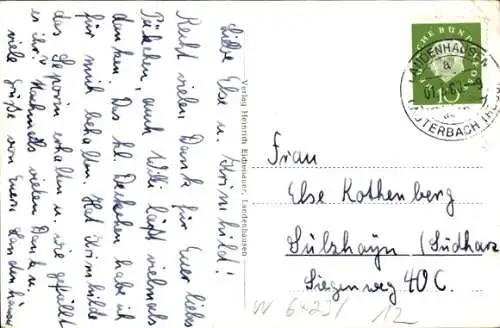 Liebe Else u. Krimhild!
Recht vielen Dank für Euer liebes
Päckchen, auch Willi läßt vielmals
danken. Das kl. Deckchen habe ich
für mich behalten. Hat Krimhilde
das erhalten u. wie gefällt
es ihr? Nochmals vielen Dank u.
viele Grüße von Euern
Verlag Heinrich Eidenauer, Landenhausen
LANDENHAUSEN
LAUTERBACH
10
Frau
Else Rothenberg
Sülzhayn (Südharz
Siegenweg 40C.
12